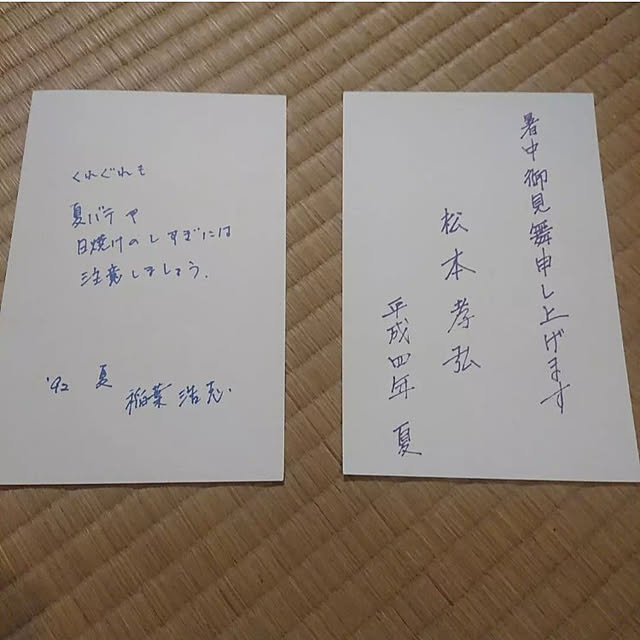 くれぐれも
夏バテや
日焼けのしすぎには
注意しましょう.
'92 夏
稲葉浩志
暑中御見舞申し上げます
松本孝弘
平成四年 夏